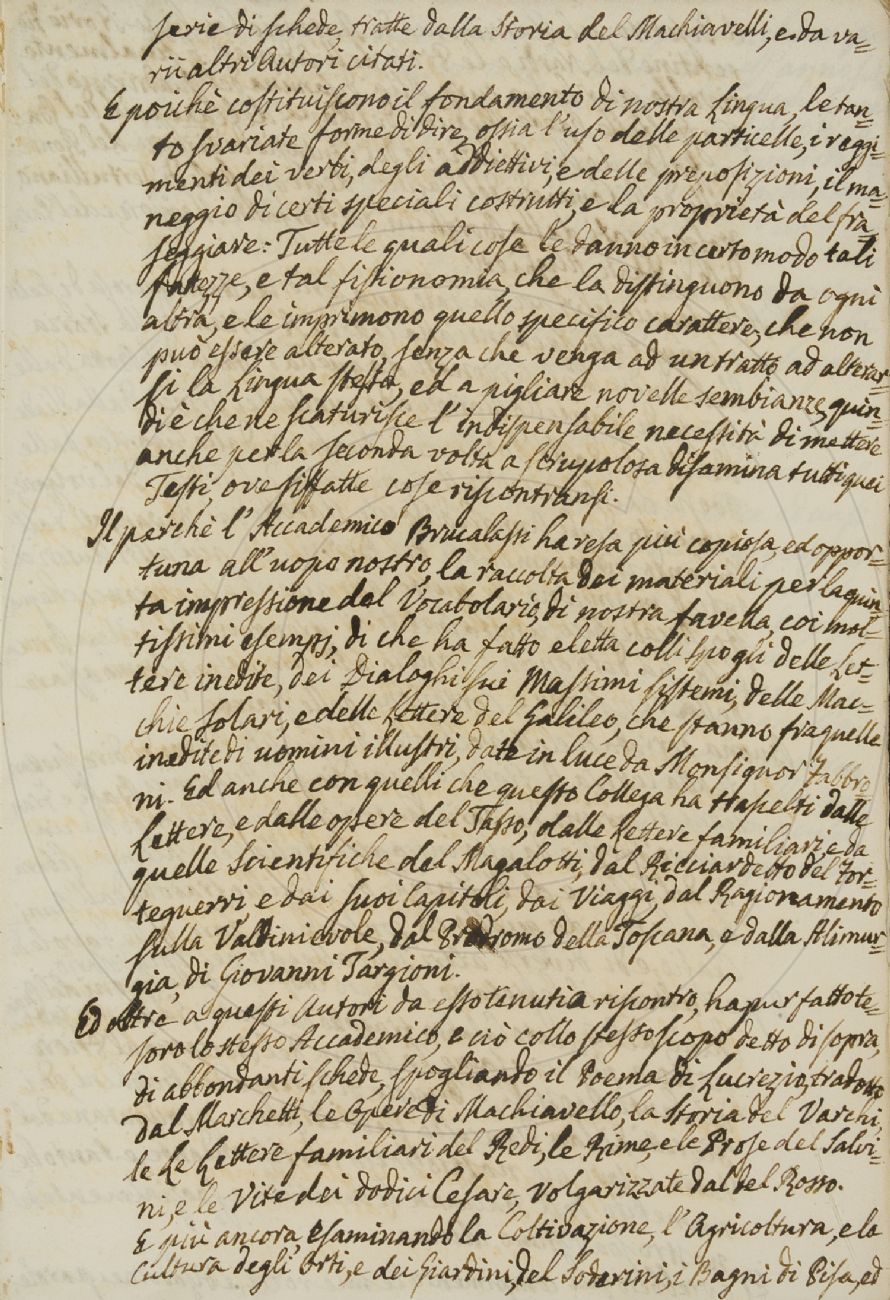 serie di schede, tratte dalla Storia del Machiavelli, e da va=
rii altri Autori citati.
E poichè costituiscono il fondamento di nostra Lingua, le tan=
to svariate forme di dire, ossia l'uso delle particelle, i reggi=
menti dei verbi, degli addiettivi, e delle preposizioni, il ma=
neggio di certi speciali costrutti, e la proprietà del fra=
seggiare: Tutte le quali cose le danno in certo modo tali
fattezze, e tal fisionomia, che la distinguono da ogni
altra, e le imprimono quello specifico carattere, che non
può essere alterato, senza che venga ad un tratto ad alterar=
si la Lingua stessa, ed a pigliare novelle sembianze, quin=
di è che ne scaturisce l'indispensabile necessità di mettere
anche per la seconda volta a scrupolosa disamina tutti quei
Testi, ove siffatte cose riscontransi.
Il perchè l'Accademico Brucalassi ha resa più copiosa, ed oppor=
tuna all'uopo nostro, la raccolta dei materiali per la quin=
ta impressione del Vocabolario, di nostra favella, coi mol=
tissimi esempj, di che ha fatto eletta colli spogli delle Let=
tere inedite, dei Dialoghi sui Massimi sistemi, delle Mac=
chie solari, e delle Lettere del Galileo, che stanno fra quelle
inedite di uomini illustri, date in luce da Monsignor Fabbro=
ni. Ed anche con quelli che questo Collega ha trascelti dalle
Lettere, e dalle opere del Tasso; dalle Lettere familiari, e da
quelle Scientifiche del Magalotti, dal Ricciardetto del For=
teguerri, e dai suoi Capitoli, dai Viaggi, dal Ragionamento
sulla Valdinievole, dal Prodromo della Toscana, e dalla Alimur=
gia, di Giovanni Targioni.
Ed oltre a questi Autori da esso tenuti a riscontro, ha pur fatto te=
soro lo stesso Accademico, e ciò collo stesso scopo detto di sopra,
di abbondanti schede, spogliando il Poema di Lucrezio, tradotto
dal Marchetti, le Opere di Machiavello, la Storia del Varchi,
le Le Lettere familiari del Redi, le Rime, e le Prose del Salvi=
ni, e le Vite dei dodici Cesare, volgarizzate dal del Rosso.
E più ancora, esaminando la Coltivazione, l'Agricoltura, e la
Cultura degli Orti, e dei Giardini, del Soderini, i Bagni di Pisa, ed